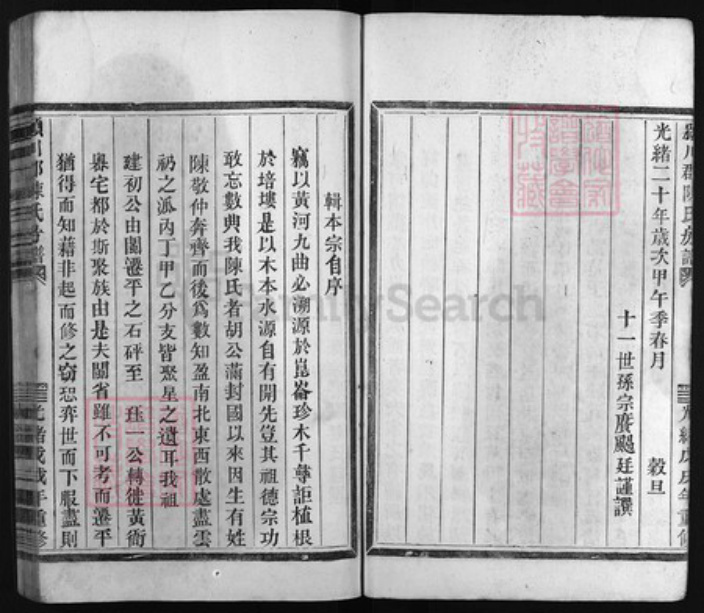 光緒二十年歲次甲午季春月 穀旦
十一世孫宗賡颺廷謹譔
輯本宗自序
竊以黃河九曲必溯源於崑崙珍木千尋詎植根
於培塿是以木本水源自有開先豈其祖德宗功
敢忘數典我陳氏者胡公滿封國以來因生有姓
陳敬仲奔齊而後爲數知盈南北東西散處盡雲
礽之派丙丁甲乙分支皆聚星之遺耳我祖
建初公由閩遷平之石砰至 珏一公轉徙黃衙
奠宅都於斯聚族由是夫閩省雖不可考而遷平
猶得而知藉非起而修之窃恐弈世而下服盡則
潁川郡陳氏房譜
光緒戊戌年重修
FamilySearch